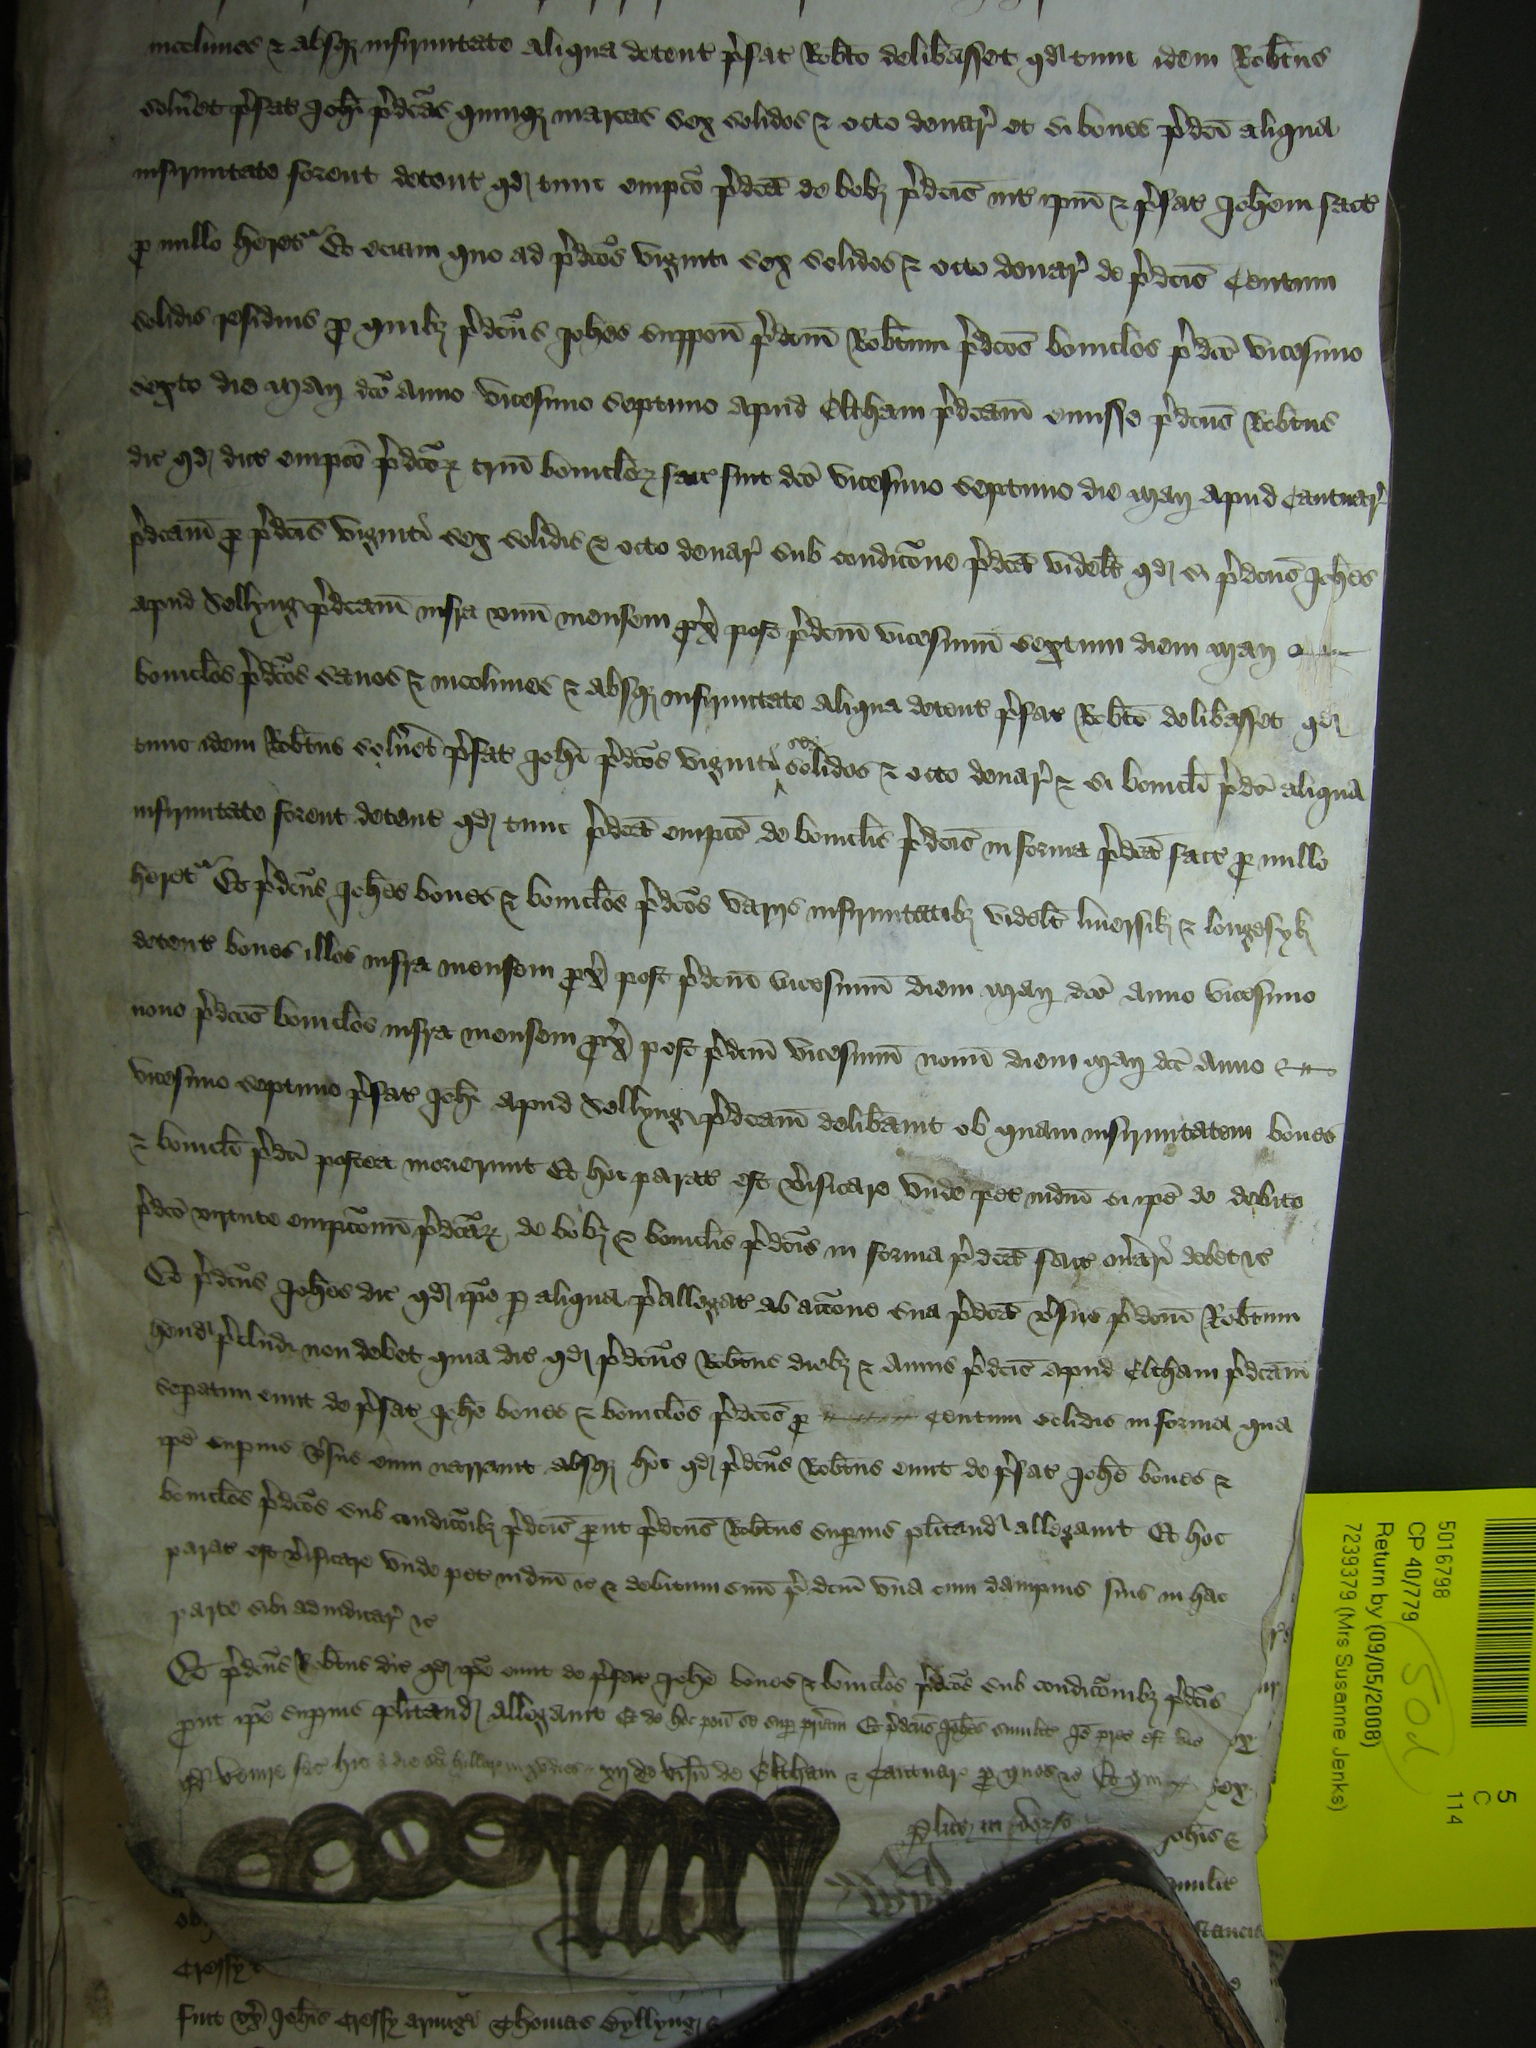 incolumes & absq3 infirmitate aliqua detent p'fat Rob'to delib'asset qd' tunc idem Rob'tus
solu'et p'fat Joh'i p'dc'as quinq3 marcas sex solidos & octo denar' et si boues p'dc'i aliqua
infirmitate forent detent qd' tunc empc'o p'dc'a de bob3 p'dc'is int' ip'm & p'fat Joh'em fact
p nullo heret'r Et eciam quo ad p'dc'os viginti sex solidos & octo denar' de p'dc'is Centum
solidis residuis p quib3 p'dc'us Joh'es suppon' p'dc'm Rob'tum p'dc'os bouiclos p'dc'o vicesimo
sexto die Maij dc'o anno vicesimo septimo apud Eltham p'dc'am emisse p'dc'us Rob'tus
dic' qd' dict empc'o p'dc'or' trium bouiclor' fact fuit dc'o vicesimo septimo die Maij apud Cantuar'
p'dc'am p p'dc'is viginti sex solidis & octo denar' sub condic'one p'dc'a videl't qd' si p'dc'us Joh'es
apud Sellyng p'dc'am infra vnu' mensem px' post p'dc'm vicesimu' sextum diem Maij
bouiclos p'dc'os sanos & incolumes & absq3 infirmitate aliqua detent p'fat Rob'to delib'asset qd'
tunc idem Rob'tus solu'et p'fat Joh'i p'dc'os viginti sex solidos & octo denar' & si bouicli p'dc'i aliqua
infirmitate forent detent qd' tunc p'dc'a empc'o de bouiclis p'dc'is in forma p'dc'a fact p nullo
heret'r Et p'dc'us Joh'es boues & bouiclos p'dc'os varijs infirmitatib3 videl't liuersik & longesyk
detent boues illos infra mensem px' post p'dc'm vicesimu' diem Maij dc'o anno vicesimo
nono p'dc'os bouiclos infra mensem px' post p'dc'm vicesimu' nonu' diem Maij dc'o anno
vicesimo septimo p'fat Joh'i apud Sellyng p'dc'am delib'auit ob quam infirmitatem boues
& bouicli p'dc'i postea morierunt Et hoc parat est v'ificare vnde pet iudm' si ip'e de debito
p'dc'o virtute empc'onu' p'dc'ar' de bob3 & bouiclis p'dc'is in forma p'dc'a fact on'ari debet &c
Et p'dc'us Joh'es dic' qd' ip'e p aliqua p'allegat ab acc'one sua p'dc'a v'sus p'dc'm Rob'tum
h'end' p'cludi non debet quia dic' qd' p'dc'us Rob'tus dieb3 & annis p'dc'is apud Eltham p'dc'am
sepatim emit de p'fat Joh'e boues & bouiclos p'dc'os p Centum solidis in forma qua
ip'e supius v'sus eum narrauit absq3 hoc qd' p'dc'us Rob'tus emit de p'fat Joh'e boues &
bouiclos p'dc'os sub condic'oib3 p'dc'is put p'dc'us Rob'tus supius pl'itand' allegauit Et hoc
parat est v'ificare vnde pet iudm' &c & debitum suu' p'dc'm vna cum dampnis suis in hac
parte sibi adiudicar' &c
Et p'dc'us Rob'tus dic' qd' ip'e emit de p'fat Joh'e boues & bouiclos p'dc'os sub condic'onib3 p'dc'is
put ip'e supius pl'itand' allegauit Et de hoc pon' se sup pr'iam Et p'dc'us Joh'es simil'r Io' prec' est vic'
qd' venire fac' hic a die sc'i Hillar' in xv dies xij de vis'u de Eltham & Cantuar' p quos &c Et qui
Plus in dorso
Joh'is &
simil'r
Cressy
fuit vx' Joh'is Cressy armig'i Thomas Dyllyng
5016798
CP 40/779
Return by (09/05/2008)
7239379 (Mrs Susanne Jenks)
50d
5
C
114